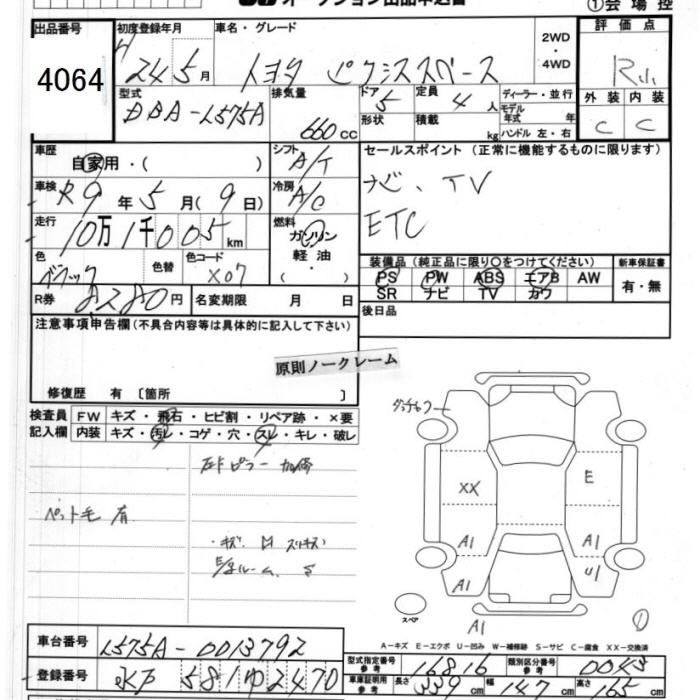 オークション出品申込書
①会場控
出品番号 初度登録年月 車名・グレード 2WD・4WD 評価点
4064 24 5月 トヨタ ピクシススペース R小
型式 排気量 ドア 定員 ディーラー・並行 外装 内装
DBA-L575A 660cc 5 4人 モデル年式 年 C C
形状 積載 kg ハンドル 左・右
車歴 自家用・( ) シフト A/T セールスポイント(正常に機能するものに限ります)
車検 R9年5月(9日) 冷房 A/C ナビ、TV
走行 10万1千005km 燃料 ガソリン ETC
軽油・( )
色 ブラック 色替 色コード X07
装備品(純正品に限り○をつけてください) 新車保証書
PS PW ABS エアB AW 有・無
SR ナビ TV カワ
R券 8280円 名変期限 月 日
後日品
注意事項申告欄(不具合内容等は具体的に記入して下さい)
原則ノークレーム
修復歴 有〔箇所 〕
検査員 FW キズ・飛石・ヒビ割・リペア跡・×要
記入欄 内装 キズ・汚レ・コゲ・穴・スレ・キレ・破レ
ペット毛 有
キズ
XX
E
A1
A1
A1
U1
A1
スペア
①
A-キズ E-エクボ U-凹み W-補修跡 S-サビ C-腐食 XX-交換済
車台番号 L575A-0013792
型式指定番号 参考 16816 類別区分番号 参考 0043
登録番号 水戸 581 ゆ 2470
車庫証明用 参考 長さ 339cm 幅 147cm 高さ 165cm